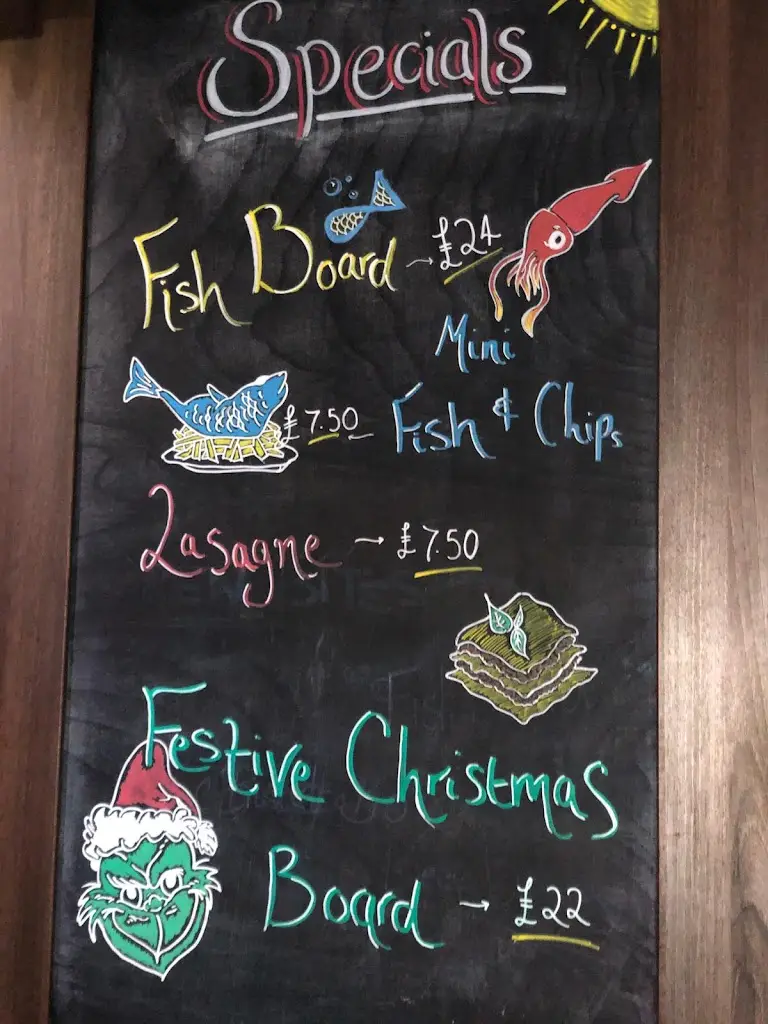 Specials
Fish Board → £24
Mini
£7.50 Fish & Chips
Lasagne → £7.50
Festive Christmas
Board → £22